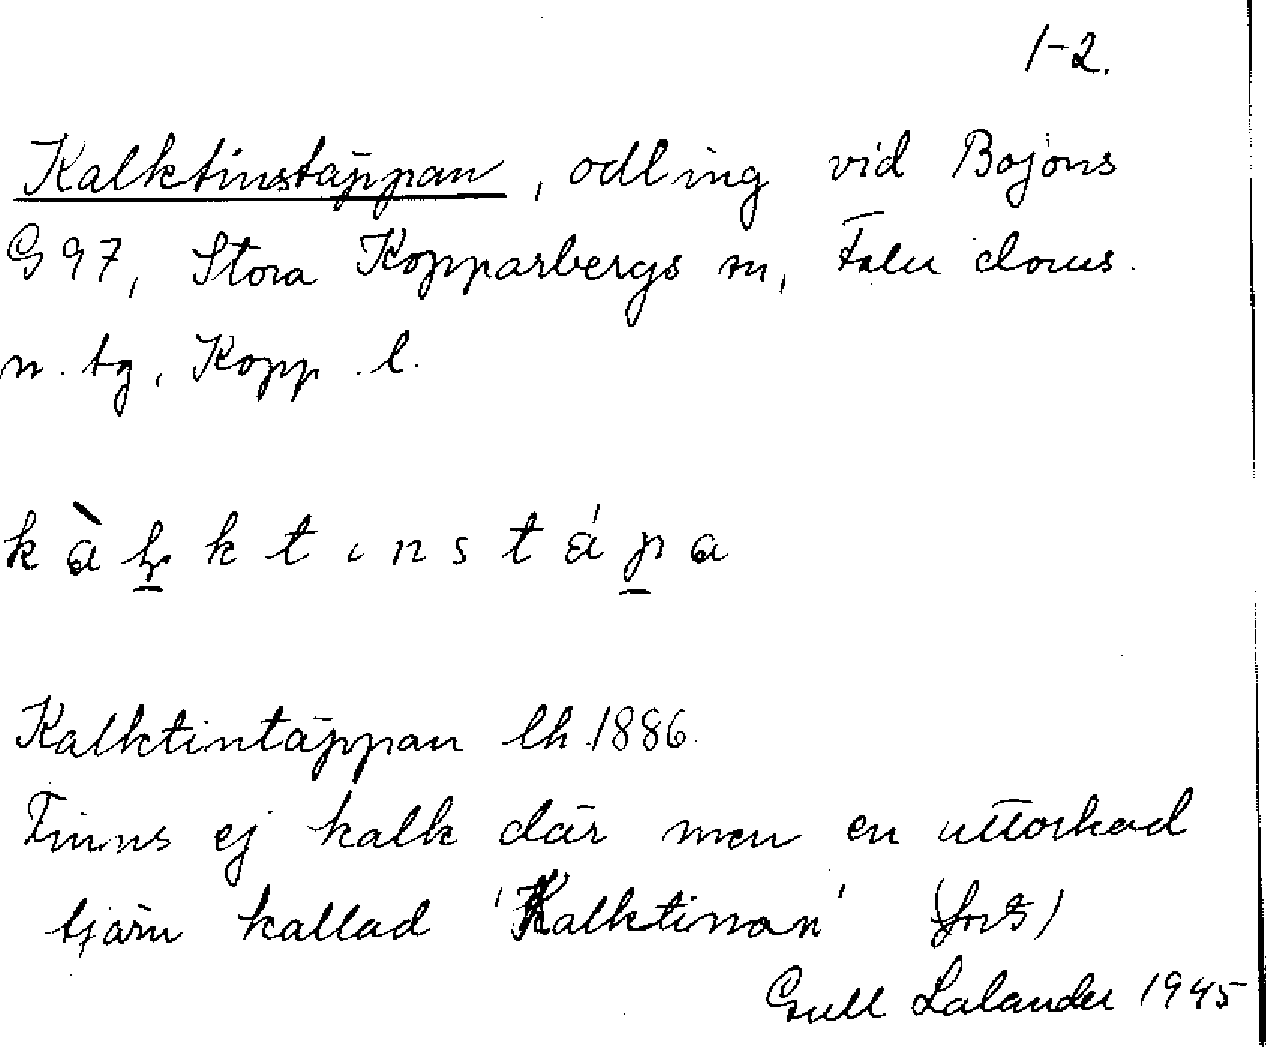 1-2.
Kalktinstäppan, odling vid Bojons
G 97, Stora Kopparbergs sn, Falu doms.
n. tg, Kopp. l.
Kalktintäppan lh 1886.
Finns ej kalk där men en uttorkad
tjärn kallad 'Kalktinan'
Gull Lalander 1945